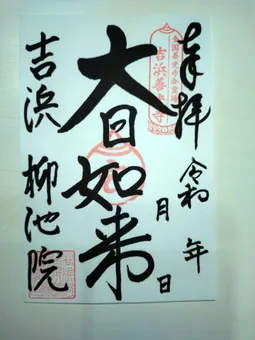 奉拝
令和 年
月 日
大日如来
吉浜 柳池院
吉浜善光寺